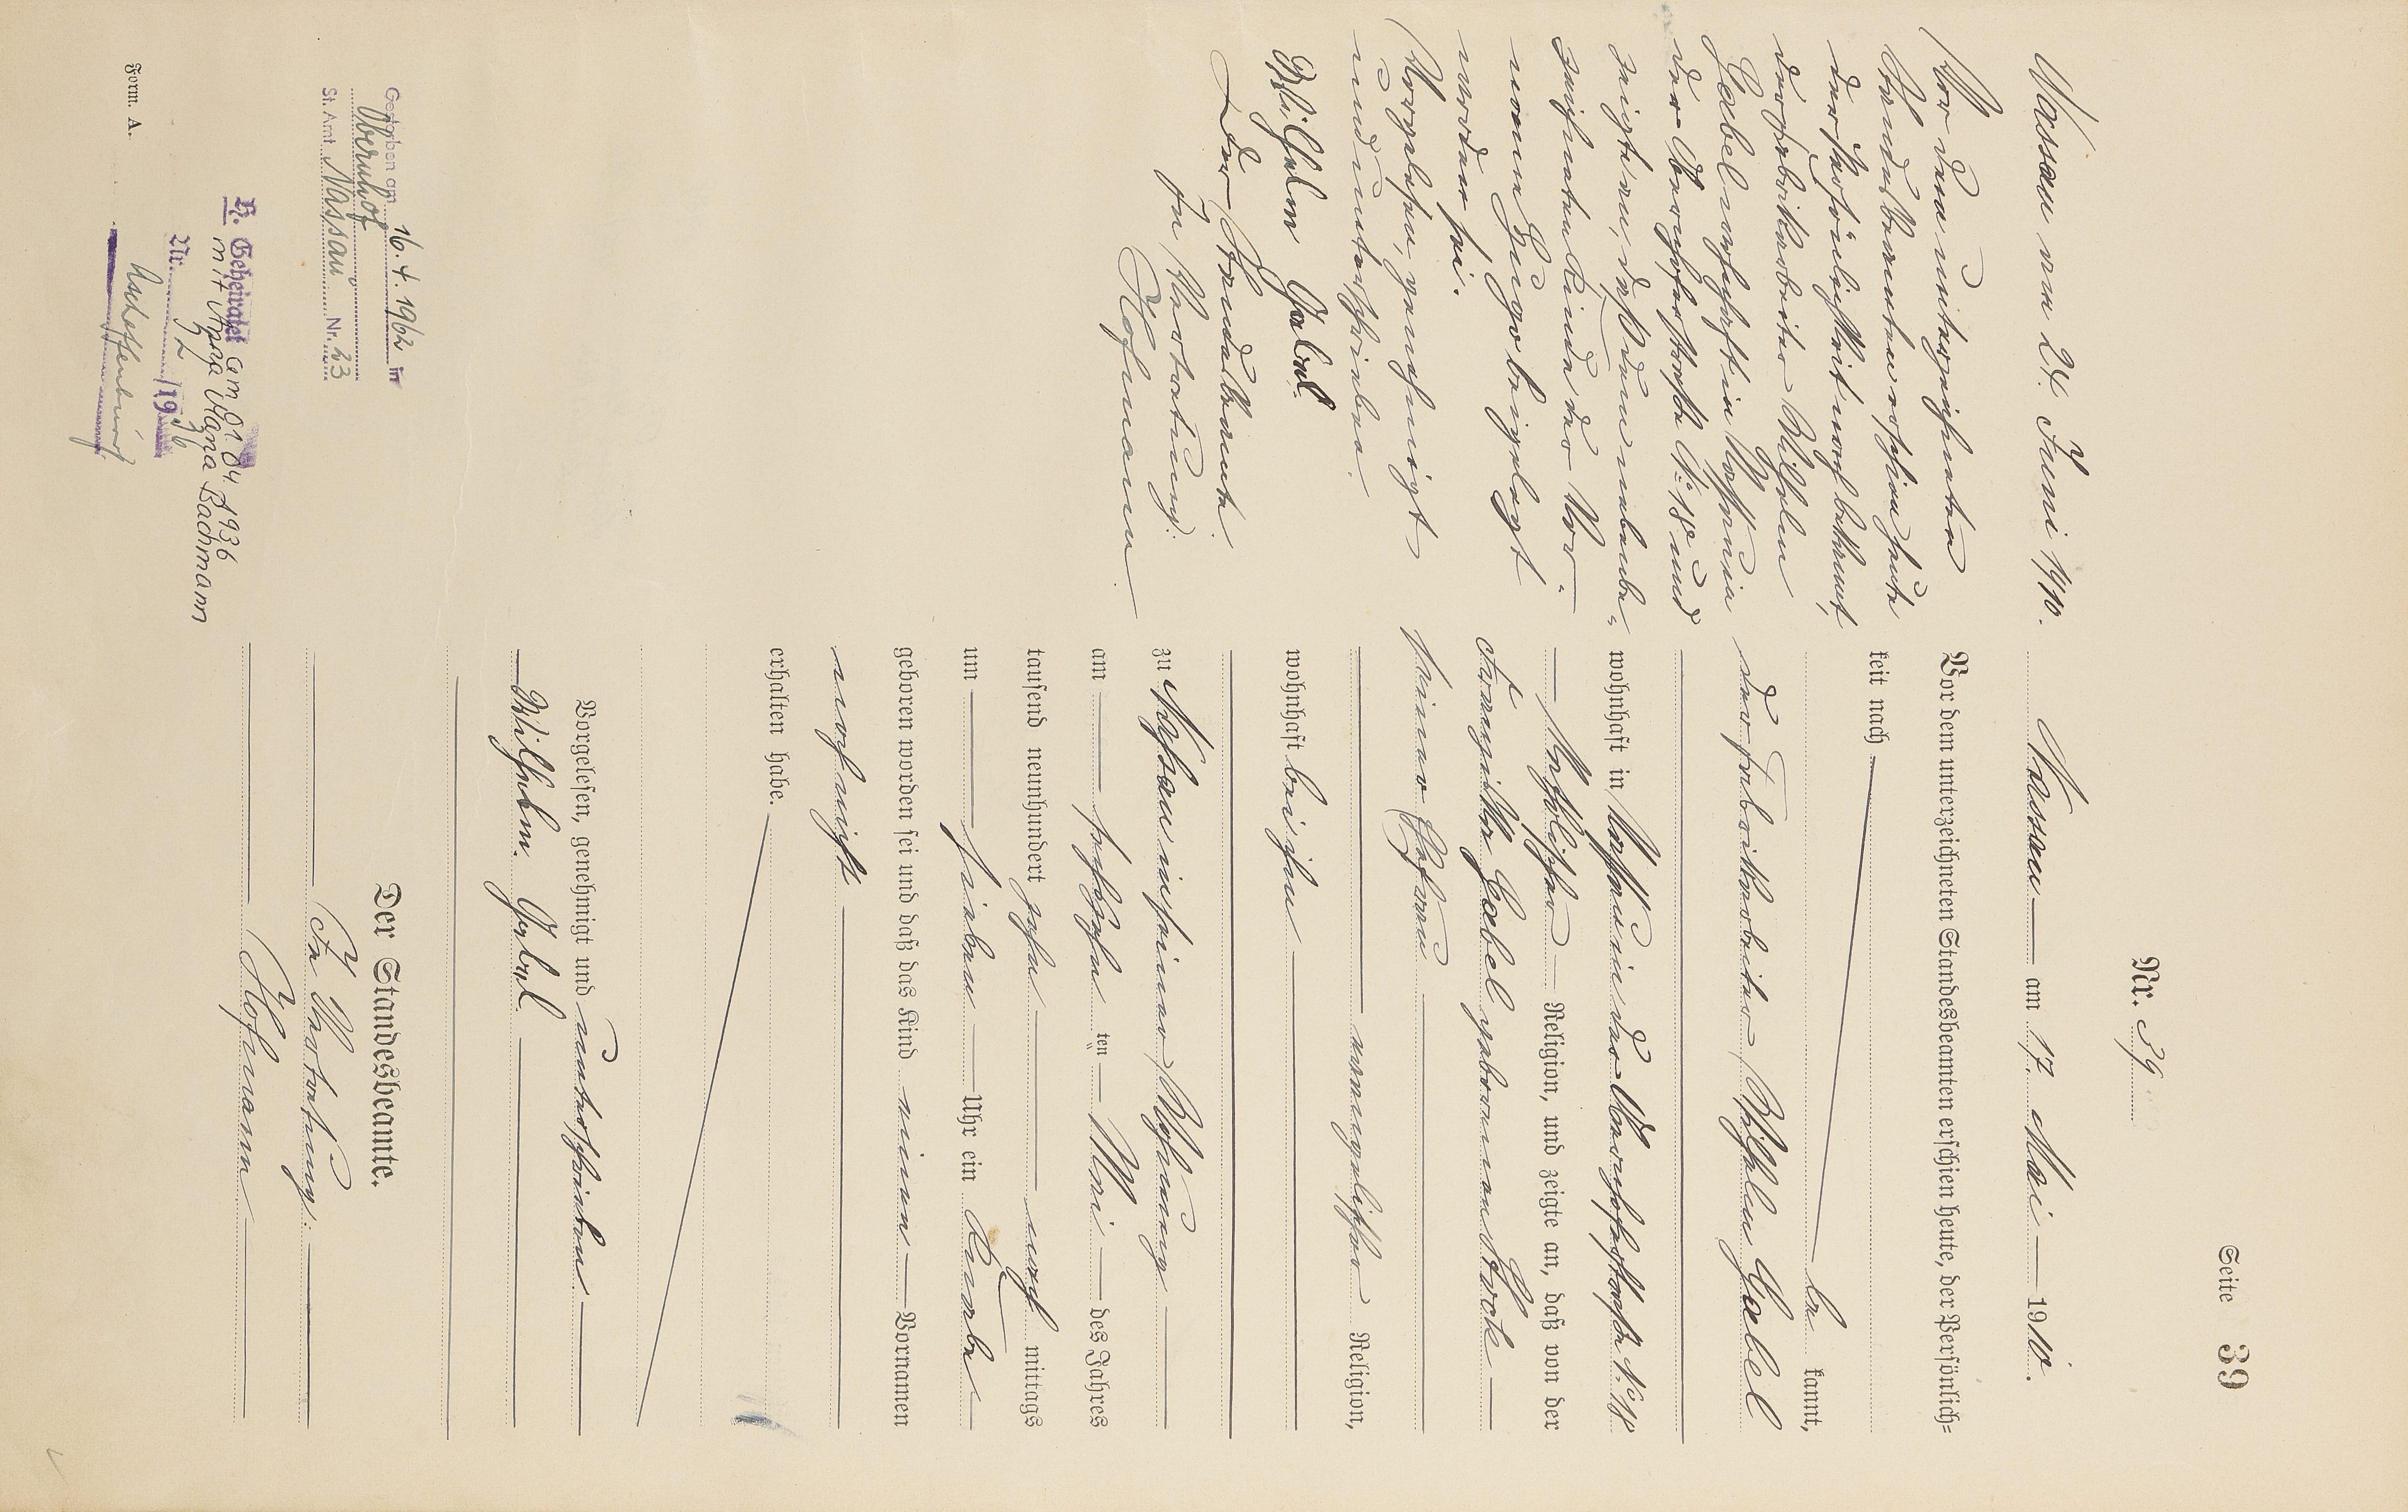 Seite 39
Nr. 39
Nassau am 17. Mai 1910.
Vor dem unterzeichneten Standesbeamten erschien heute, der Persönlich-
keit nach
be kannt,
der Fabrikarbeiter Wilhelm Gabel
wohnhaft in Nassau in der Oberhofer Straße N: 18
katholischer Religion, und zeigte an, daß von der
Franziska Gabel geborenen Stock
seiner Ehefrau
evangelischer Religion,
wohnhaft bei ihm
zu Nassau in seiner Wohnung
am sechszehn ten Mai des Jahres
tausend neunhundert zehn nach mittags
um sieben Uhr ein Knabe
geboren worden sei und daß das Kind einen Vornamen
noch nicht
erhalten habe.
Vorgelesen, genehmigt und unterschrieben
Wilhelm Gabel
Der Standesbeamte.
In Vertretung:
Hofmann
Nassau am 24. Juni 1910.
Vor dem unterzeichneten
Standesbeamten erschien heute
der Persönlichkeit nach bekannt,
der Fabrikarbeiter Wilhelm
Gabel wohnhaft in Nassau in
der Oberhofer Straße N: 18 und
zeigte an, daß dem nebenbe-
zeichneten Kinde der Vor-
name Hugo beigelegt
worden sei.
Vorgelesen, genehmigt
und unterschrieben.
Wilhelm Gabel
Der Standesbeamte.
In Vertretung:
Hofmann
Gestorben am 16. 4. 1962 in
Obernhof
St. Amt Nassau Nr. 33
H. Geheiratet am 01. 04. 1936
mit Anna Maria Bachmann
Nr. 72 /1936
Aschaffenburg
Form. A.